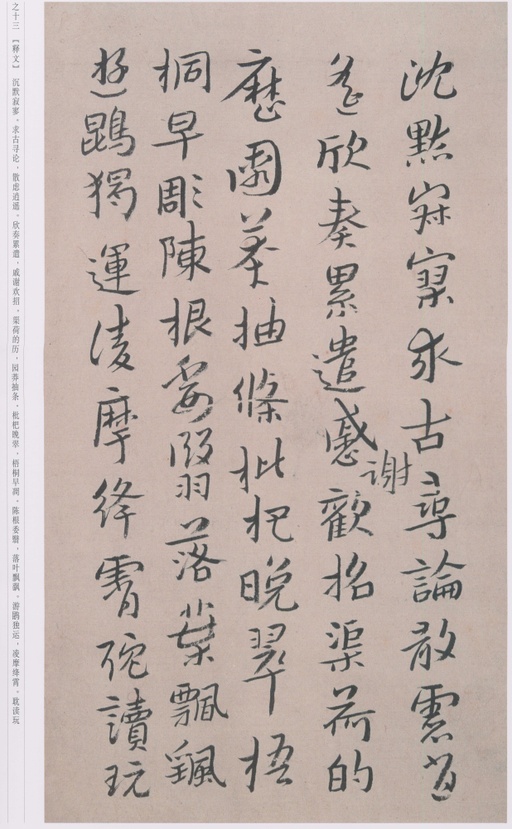 沈默寂寥求古尋論散慮逍
遙欣奏累遣慼謝歡招渠荷的
歷園莽抽條枇杷晚翠梧
桐早彫陳根委翳落葉飄颻
遊鵾獨運凌摩絳霄耽讀玩
之十三 【释文】 沉默寂寥、求古寻论、散虑逍遥、欣奏累遣、慼谢欢招、渠荷的历、园莽抽条、枇杷晚翠、梧桐早凋、陈根委翳、落叶飘飖、游鹍独运、凌摩绛霄、耽读玩